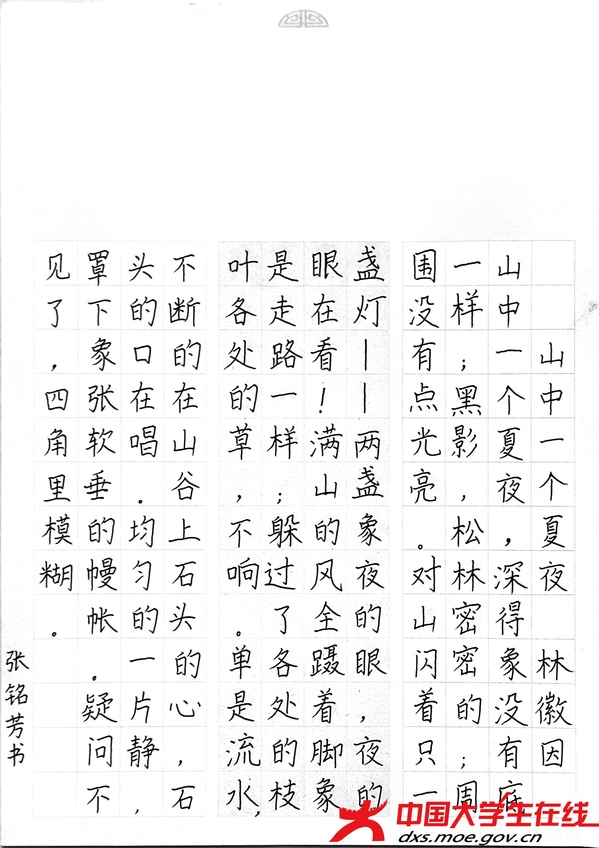 山中一个夏夜
林徽因
山中一个夏夜，深得象没有底
一样；黑影，松林密密的；周
围没有点光亮。对山闪着只一
盏灯——两盏象夜的眼，夜的
眼在看！满山的风全蹑着脚象
是走路一样；躲过了各处的枝
叶各处的草，不响。单是流水，
不断的在山谷上石头的心，石
头的口在唱。均匀的一片静，
罩下象张软垂的幔帐。疑问不
见了，四角里模糊。
张铭芳书
中国大学生在线
dxs.moe.gov.cn